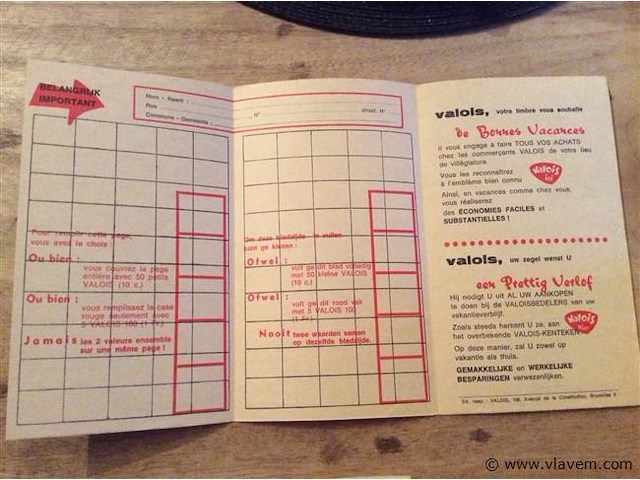 BELANGRIJK
IMPORTANT
Nom - Naam :
Rue
N°
Commune - Gemeente :
Pour remplir cette page,
vous avez le choix :
Ou bien :
vous couvrez la page
entière avec 50 petits
VALOIS (10 c.)
Ou bien :
vous remplissez la case
rouge seulement avec
5 VALOIS 100 (1 Fr.)
Jamais les 2 valeurs ensemble
sur une même page !
Om deze bladzijde in vullen
kunt ge kiezen :
Ofwel :
vult ge dit blad volledig
met 50 kleine VALOIS
(10 c.)
Ofwel :
vult ge dit rood vak
met 5 VALOIS 100
(1 Fr.)
Nooit twee waarden samen
op dezelfde bladzijde.
valois, votre timbre vous souhaite
de Bonnes Vacances
Il vous engage à faire TOUS VOS ACHATS
chez les commerçants VALOIS de votre lieu
de villégiature.
Vous les reconnaîtrez
à l'emblème bien connu
Valois
ici
Ainsi, en vacances comme chez vous,
vous réaliserez
des ÉCONOMIES FACILES et
SUBSTANTIELLES !
valois, uw zegel wenst U
een Prettig Verlof
Hij nodigt U uit AL UW AANKOPEN
te doen bij de VALOISBEDELERS van uw
vakantieverblijf.
Zoals steeds herkent U ze, aan
het overbekende VALOIS-KENTEKEN.
Valois
hier
Op deze manier, zal U zowel op
vakantie als thuis.
GEMAKKELIJKE en WERKELIJKE
BESPARINGEN verwezenlijken.
Ed. resp. : VALOIS, Avenue de la Constitution, Bruxelles
© www.vlavem.com